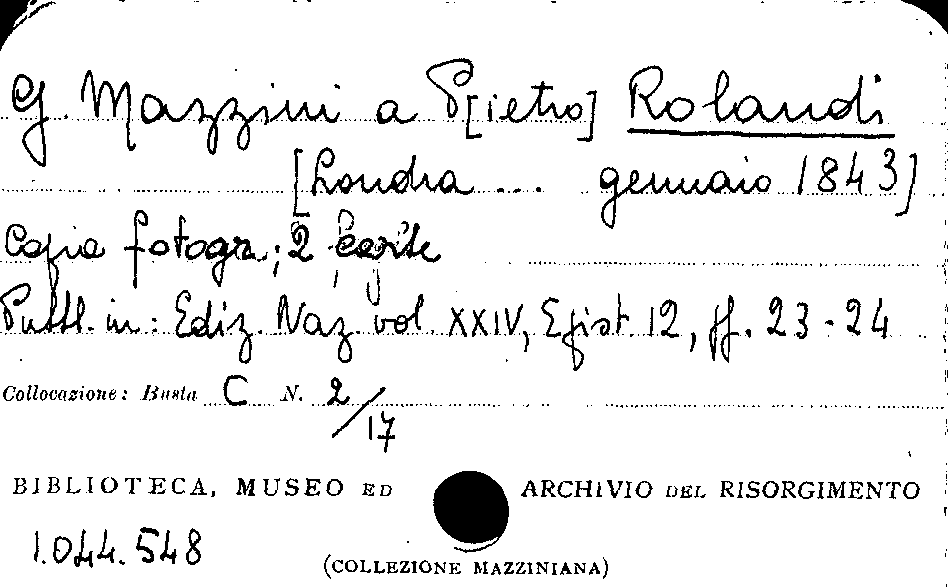 G. Mazzini a P[ietro] Rolandi
[Londra ... gennaio 1843]
Copia fotogr.; 2 carte
Pubbl. in: Ediz. Naz. vol. XXIV, Epist. 12, pp. 23-24
Collocazione: Busta C N. 2/17
BIBLIOTECA, MUSEO ED ARCHIVIO DEL RISORGIMENTO
1.044.548
(COLLEZIONE MAZZINIANA)